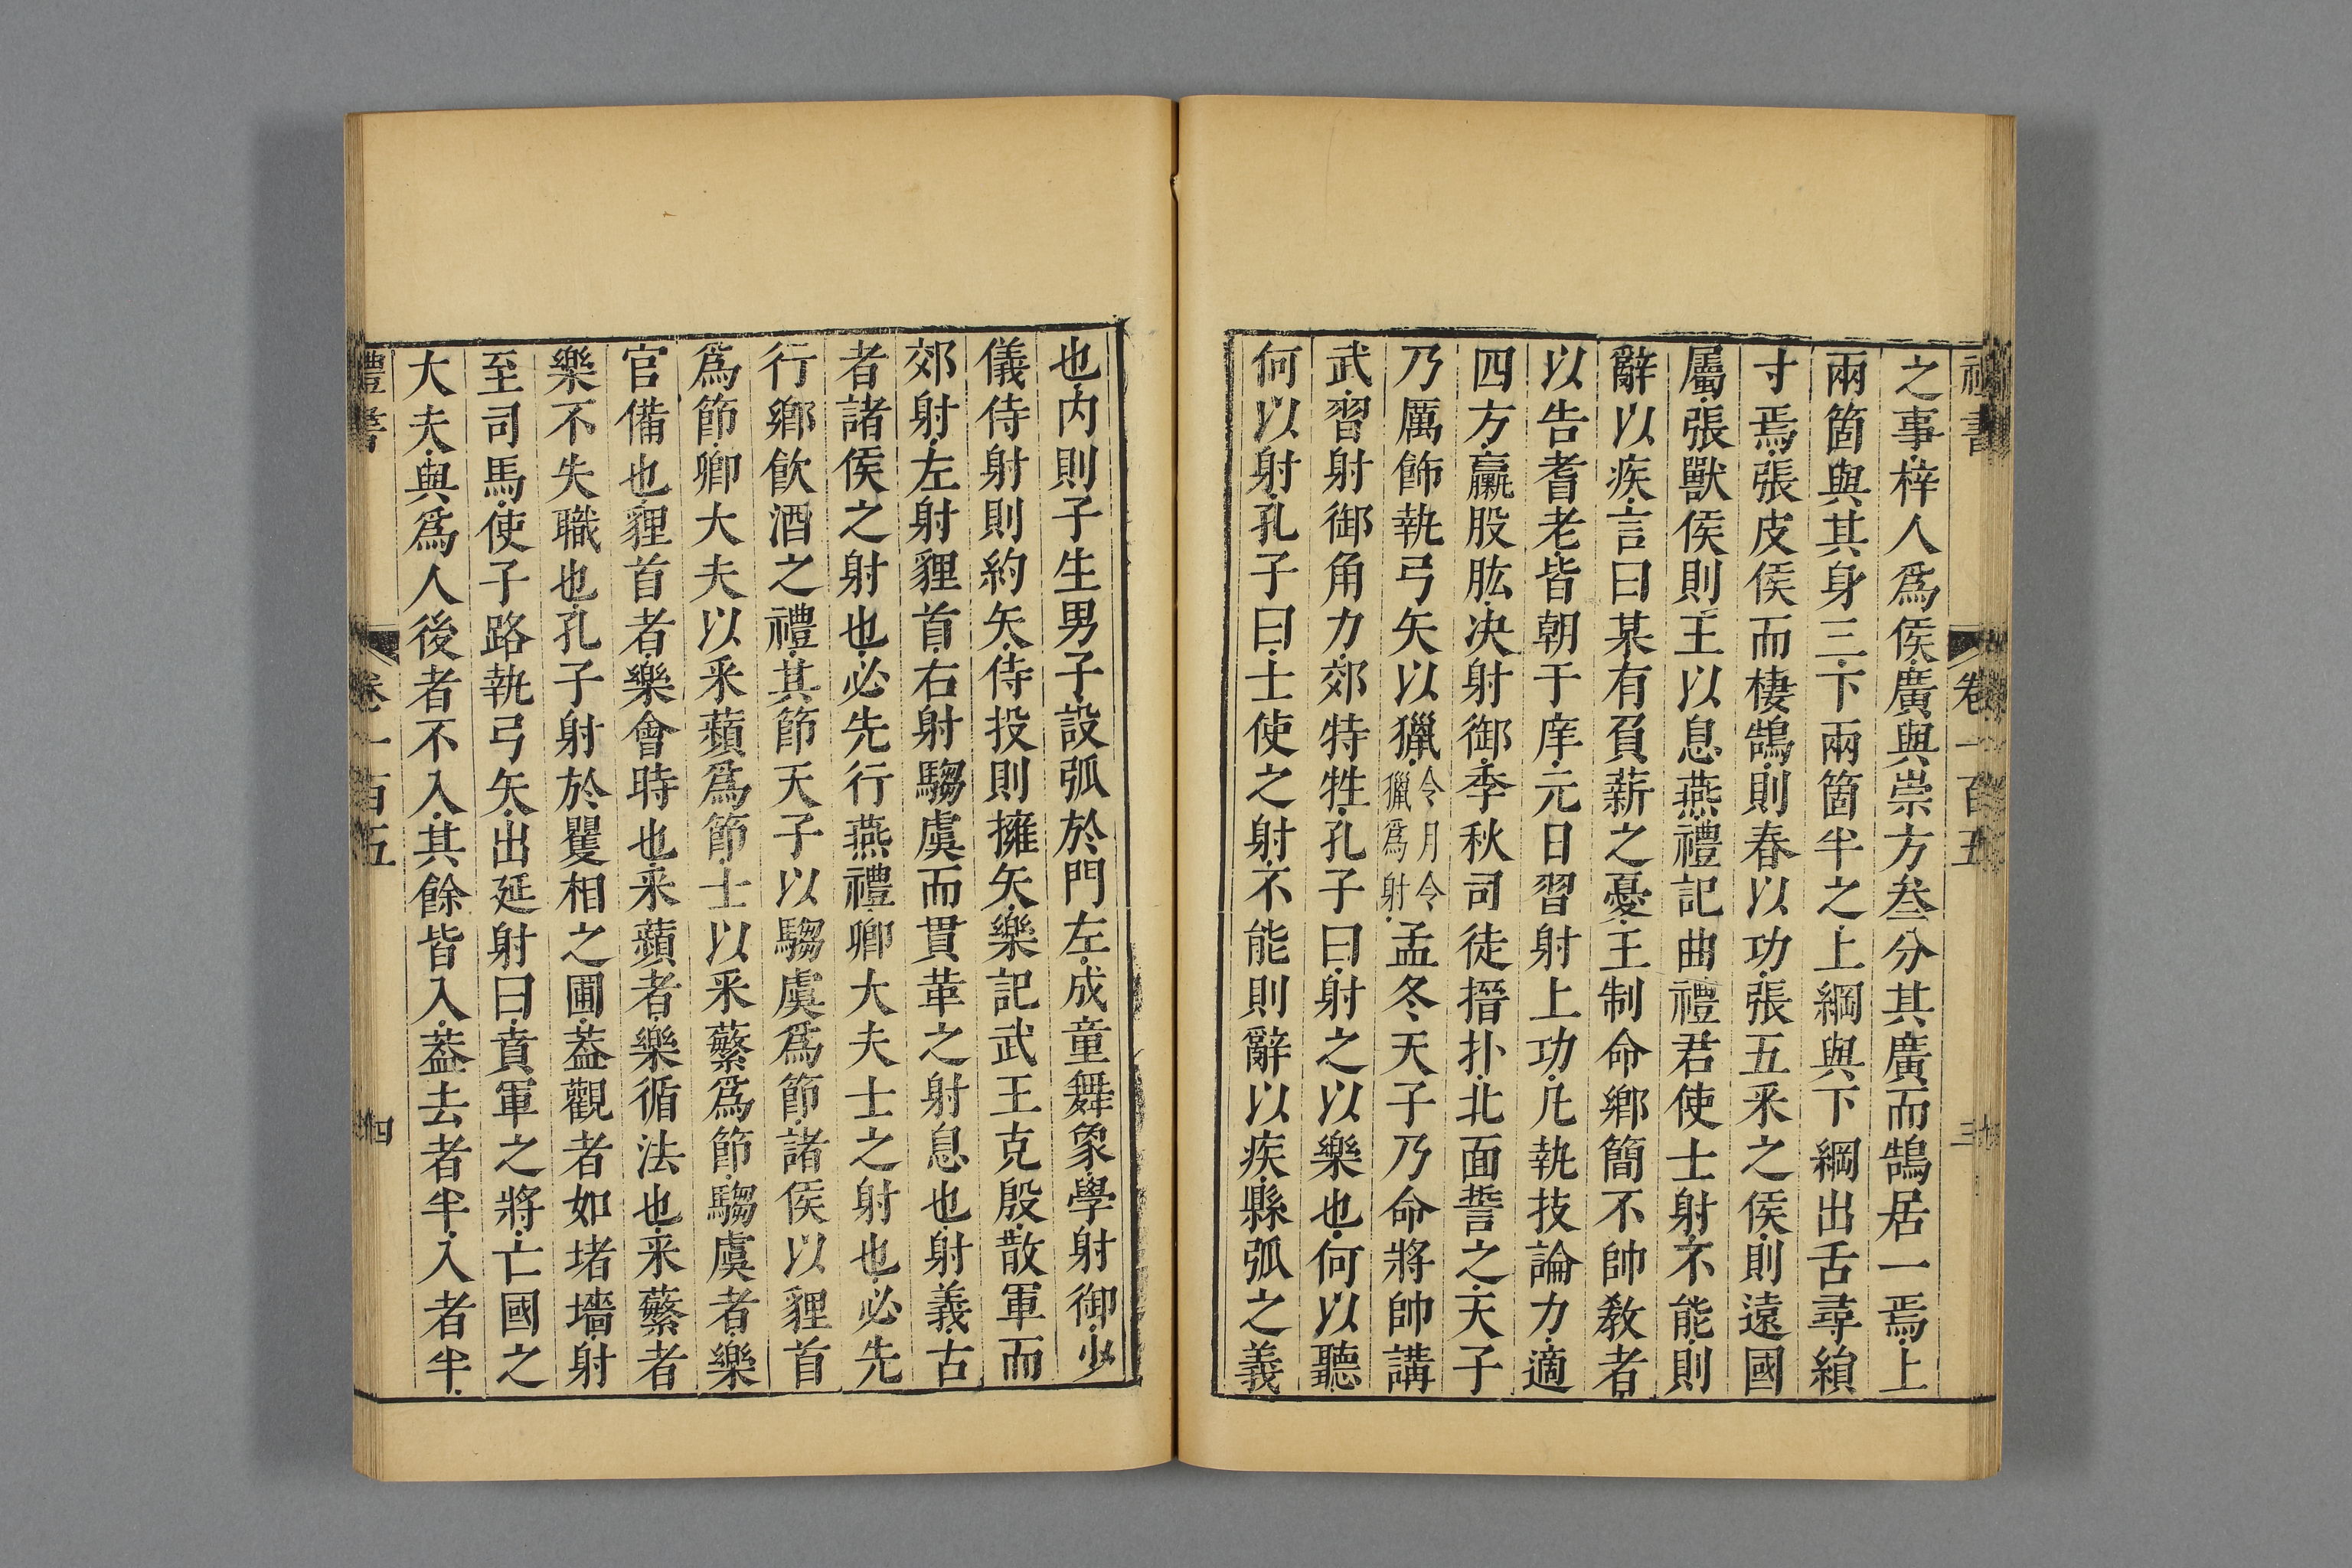 禮書 卷一百五 三
之事梓人爲侯廣與崇方叄分其廣而鵠居一焉上
兩箇與其身三下兩箇半之上綱與下綱出舌尋縜
寸焉張皮侯而棲鵠則春以功張五采之侯則遠國
屬張獸侯則王以息燕禮記曲禮君使士射不能則
辭以疾言曰某有負薪之憂王制命鄉簡不帥敎者
以告耆老皆朝于庠元日習射上功凡執技論力適
四方臝股肱决射御季秋司徒搢扑北面誓之天子
乃厲飾執弓矢以獵令月令獵爲射孟冬天子乃命將帥講
武習射御角力郊特牲孔子曰射之以樂也何以聽
何以射孔子曰士使之射不能則辭以疾縣弧之義
也内則子生男子設弧於門左成童舞象學射御少
儀侍射則約矢侍投則擁矢樂記武王克殷散軍而
郊射左射貍首右射騶虞而貫革之射息也射義古
者諸侯之射也必先行燕禮卿大夫士之射也必先
行鄉飮酒之禮其節天子以騶虞爲節諸侯以貍首
爲節卿大夫以采蘋爲節士以采蘩爲節騶虞者樂
官備也貍首者樂會時也采蘋者樂循法也采蘩者
樂不失職也孔子射於矍相之圃葢觀者如堵墻射
至司馬使子路執弓矢出延射曰賁軍之將亡國之
大夫與爲人後者不入其餘皆入葢去者半入者半
禮書 卷一百五 四